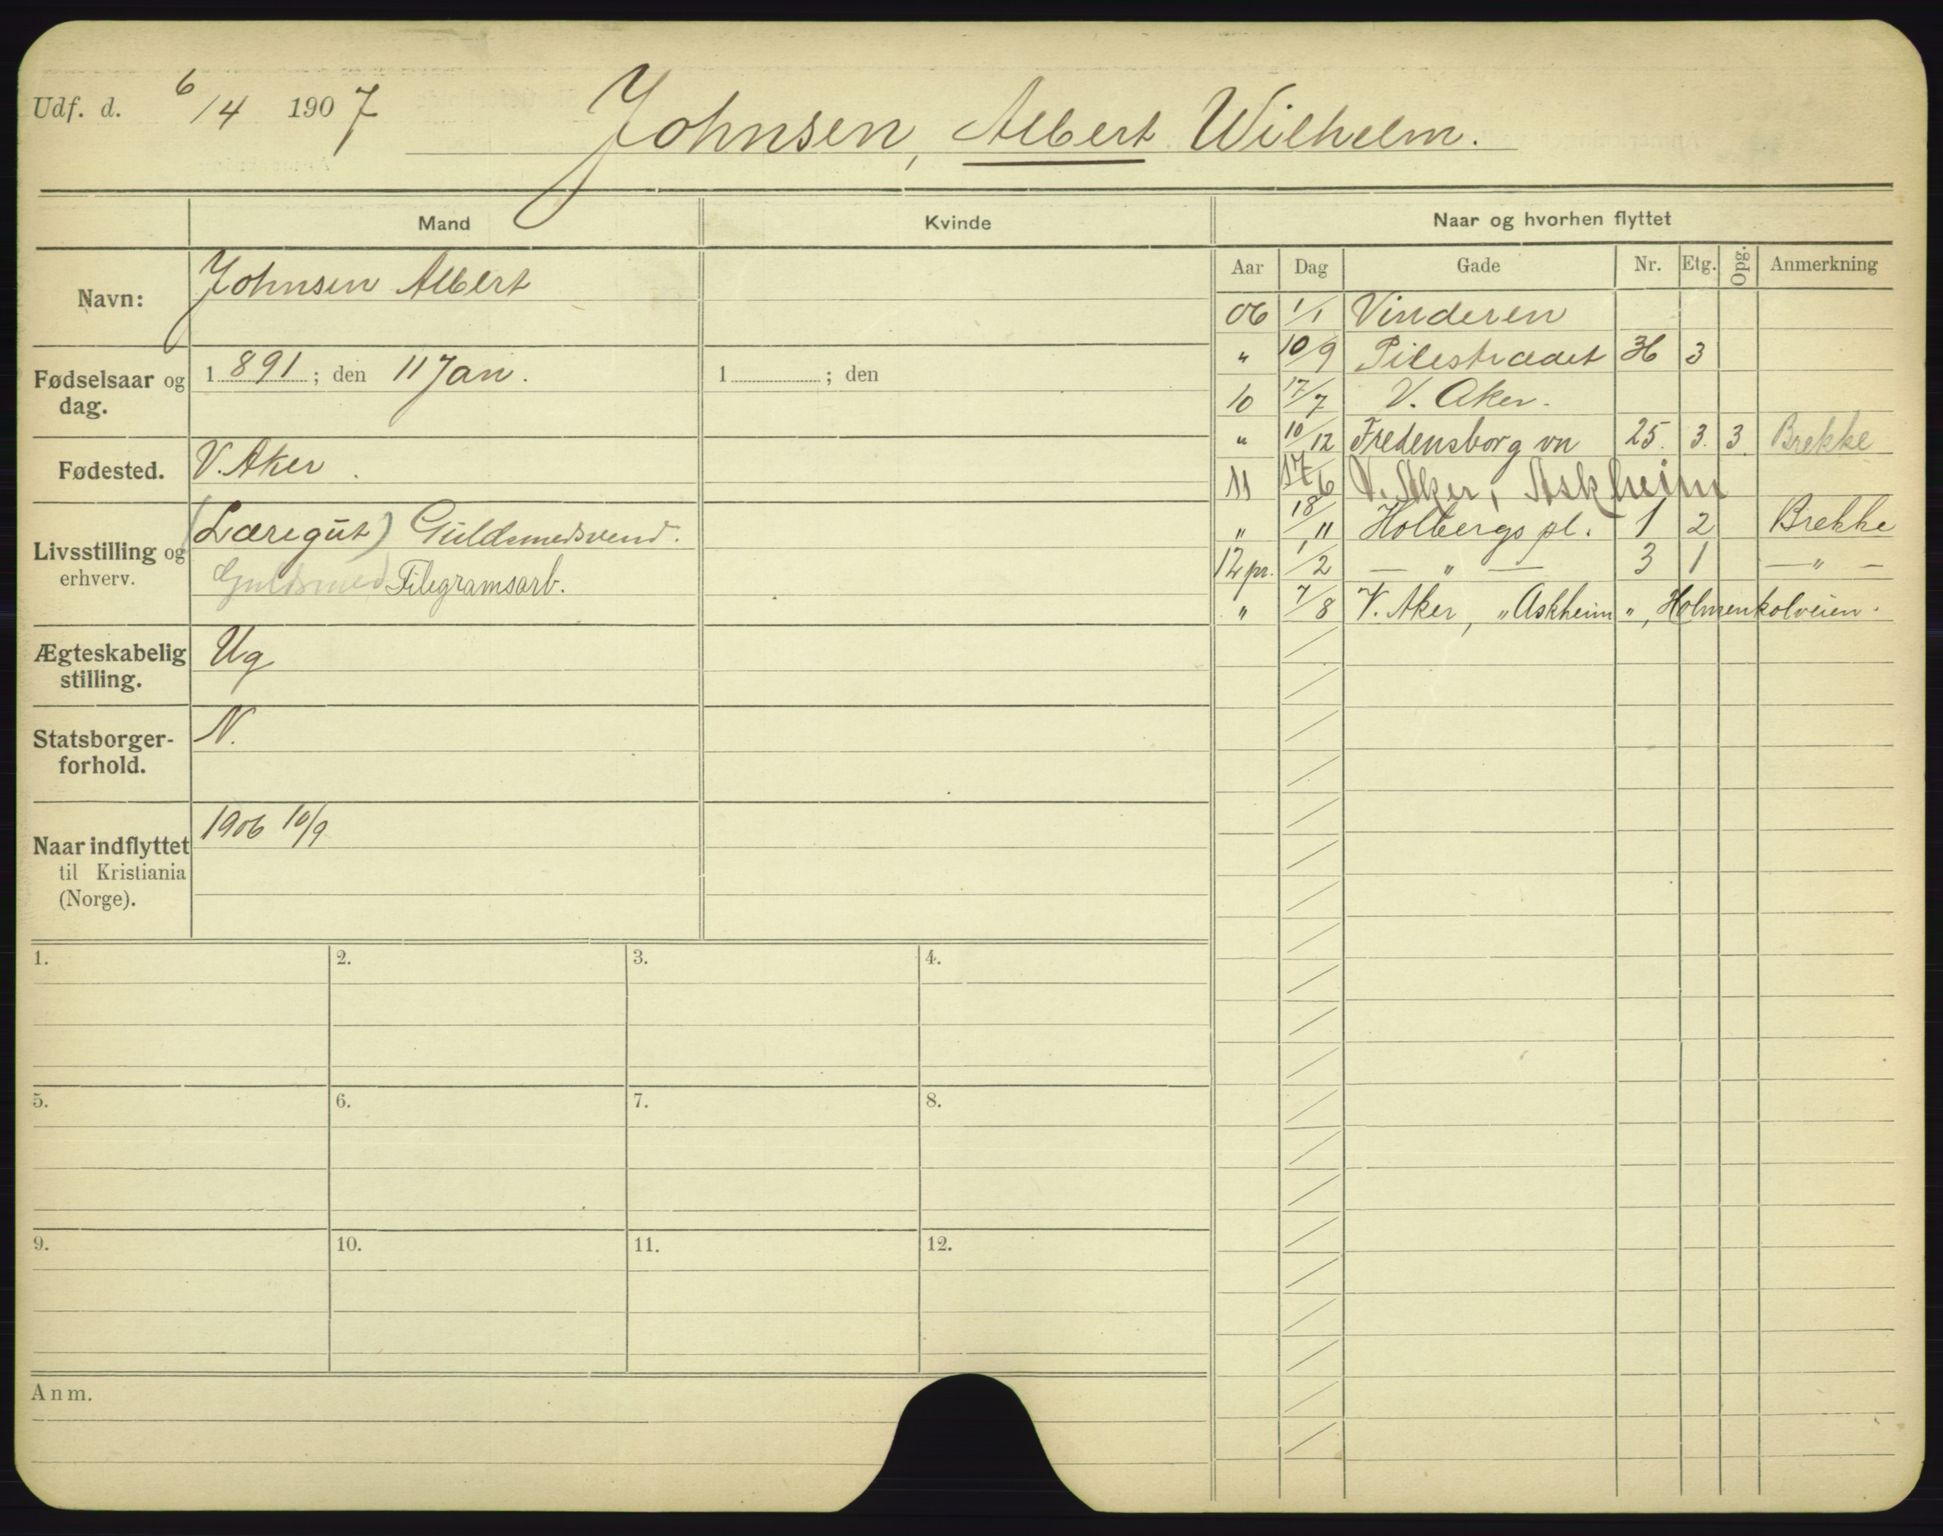 Udf. d. 6/4 1907 Johnsen, Albert Wilhelm.
Mand Kvinde Naar og hvorhen flyttet
Aar Dag Gade Nr. Etg. Opg. Anmerkning
Navn: Johnsen Albert
Fødselsaar og dag. 1891; den 11 Jan. 1 ; den
Fødested. V. Aker.
Livsstilling og erhverv. (Læregut) Guldsmedsvend.
Guldsmed Filegramsarb.
Ægteskabelig stilling. Ug
Statsborger-forhold. N.
Naar indflyttet til Kristiania (Norge). 1906 10/9
06 1/1 Vinderen
" 10/9 Pilestrædet 36 3
10 17/7 V. Aker.
" 10/12 Fredensborg vn 25. 3. 3. Brekke
11 17/6 V. Aker, Askheim
" 18/11 Holbergs pl. 1 2 Brekke
12 pr. 1/2 — " — 3 1 — " —
" 7/8 V. Aker, "Askheim", Holmenkolveien.
1. 2. 3. 4.
5. 6. 7. 8.
9. 10. 11. 12.
Anm.